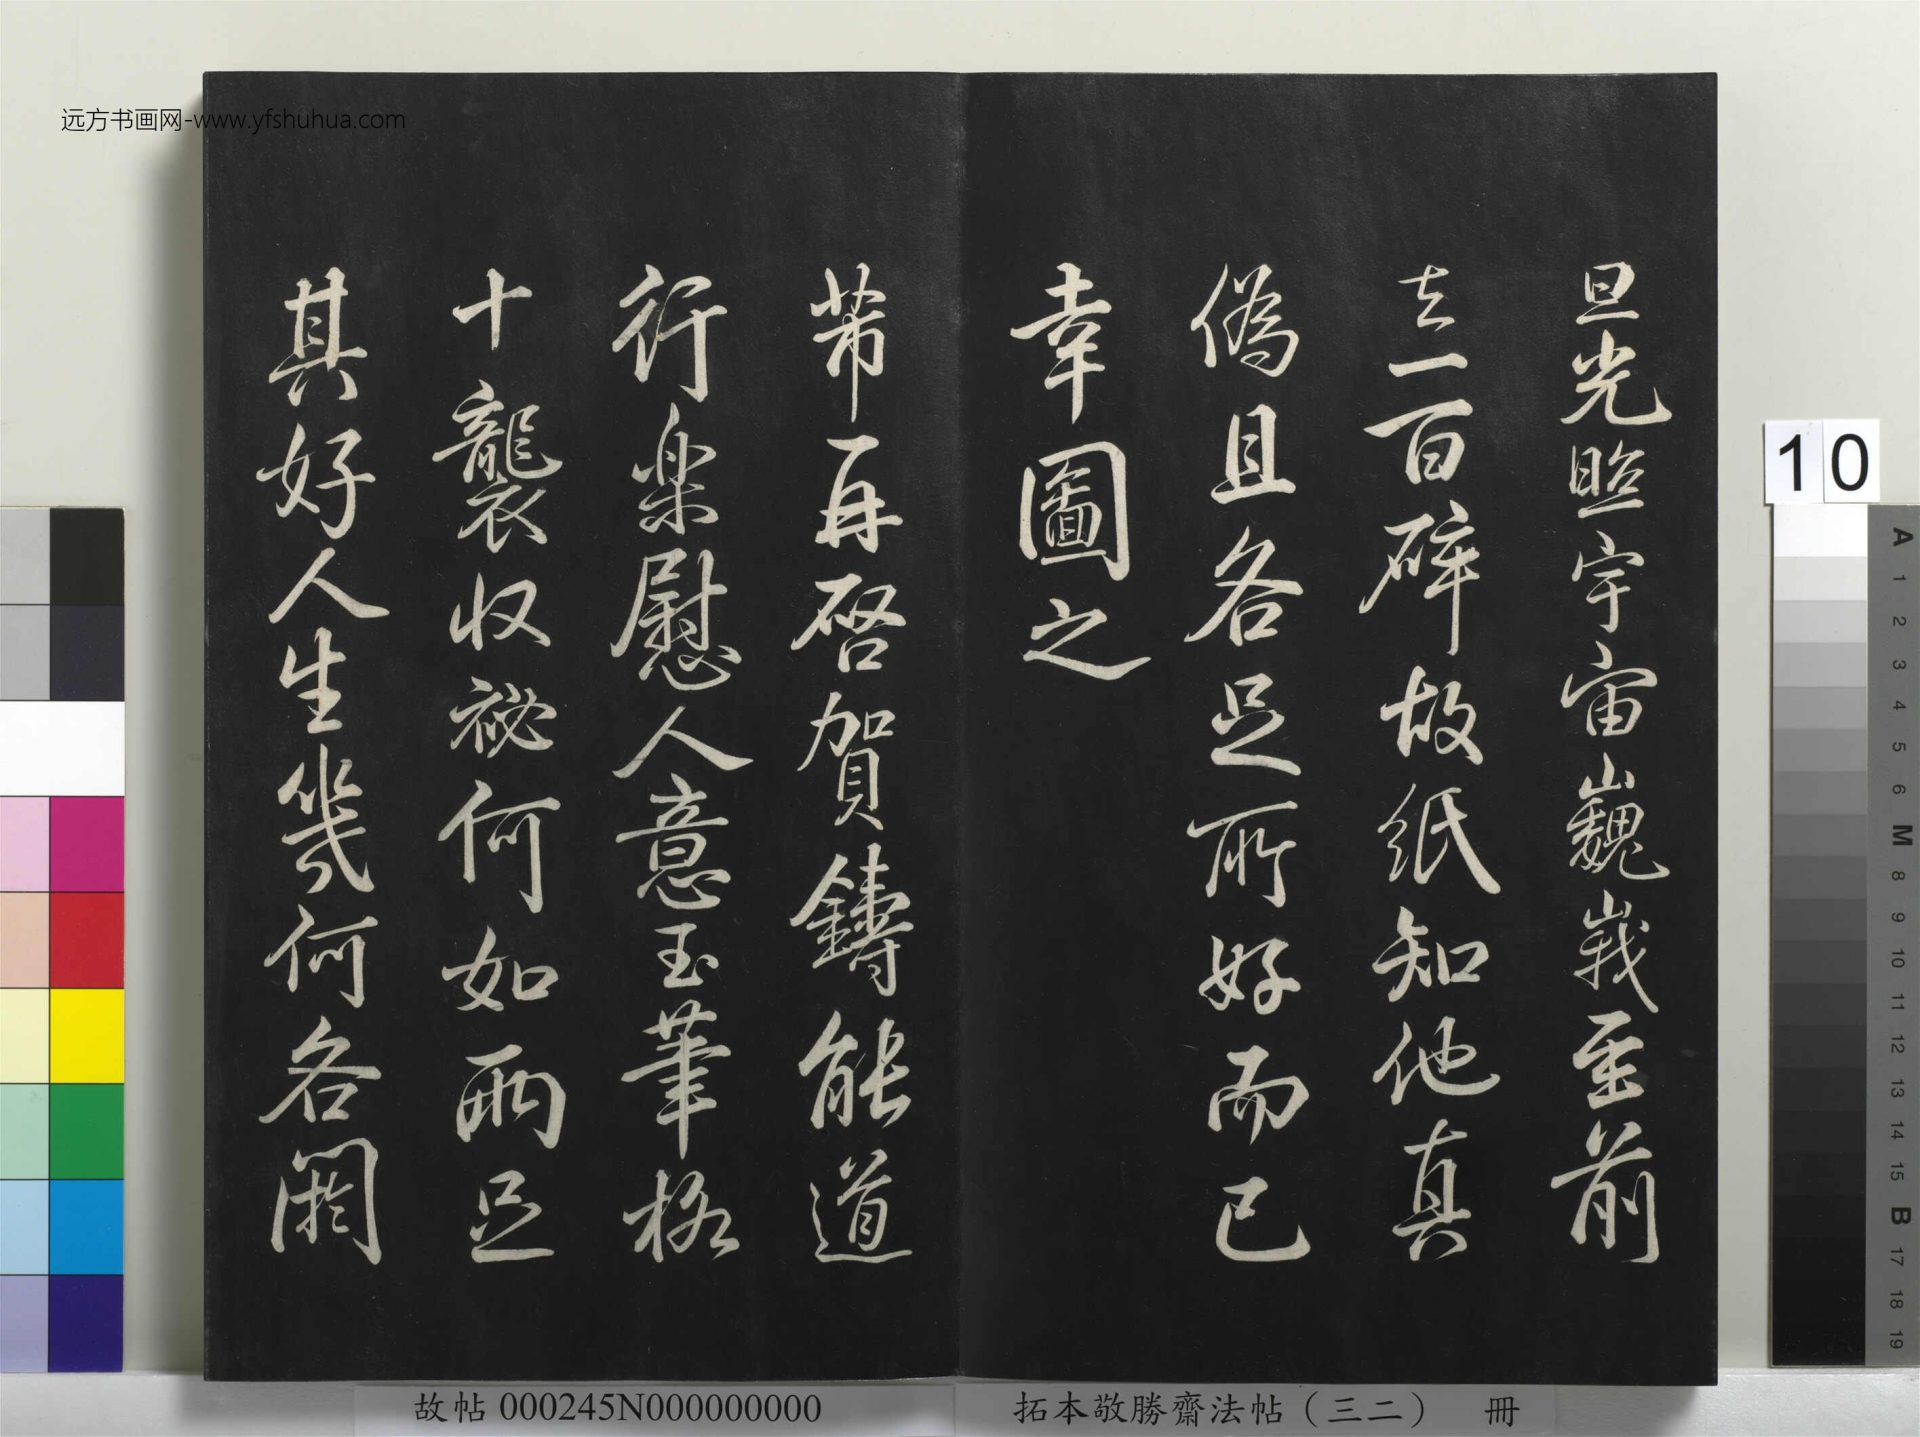 旦光照宇宙巍峩至前
去一百碎故纸知他真
偽且各足所好而已
幸圖之
芾再啓賀鑄能道
行樂慰人意玉筆格
十襲收祕何如兩足
其好人生幾何各閑
远方书画网-www.yfshuhua.com
10
A 1 2 3 4 5 6 M 8 9 10 11 12 13 14 15 B 17 18 19
故帖 000245N000000000
拓本敬勝齋法帖（三二） 冊